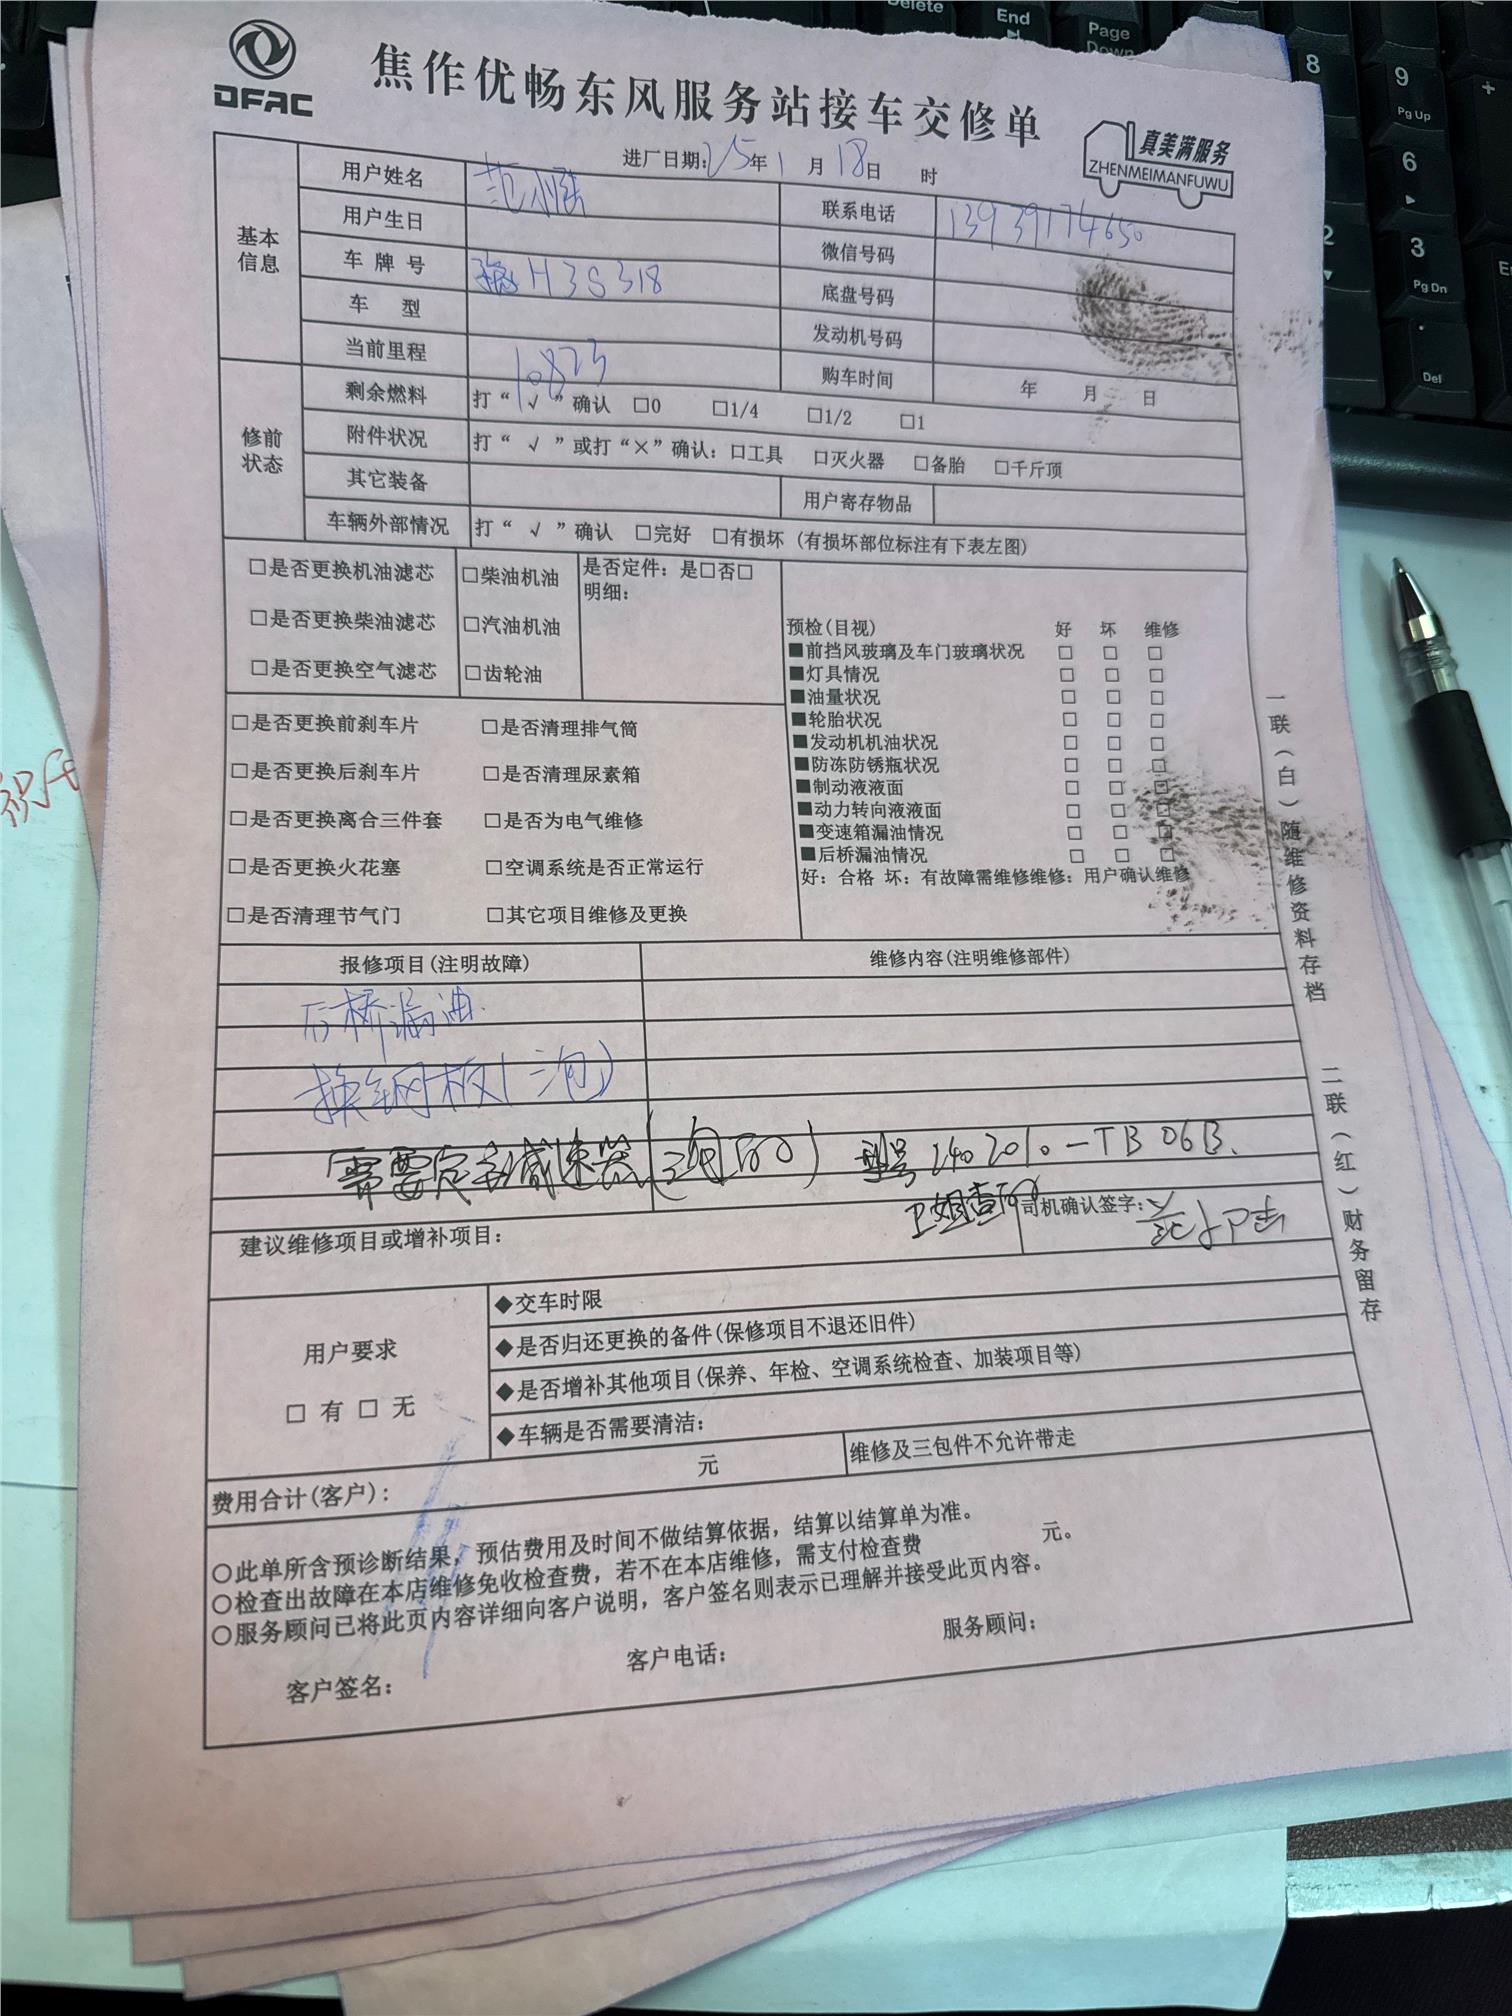 DFAC
焦作优畅东风服务站接车交修单
真美满服务
ZHENMEIMANFUWU
进厂日期:25年1月18日 时
基本信息
用户姓名 范 联系电话 13939174650
用户生日 微信号码
车牌号 豫H3S318 底盘号码
车 型 发动机号码
当前里程 10823 购车时间 年 月 日
修前状态
剩余燃料 打“√”确认 □0 □1/4 □1/2 □1
附件状况 打“√”或打“×”确认:□工具 □灭火器 □备胎 □千斤顶
其它装备 用户寄存物品
车辆外部情况 打“√”确认 □完好 □有损坏 (有损坏部位标注有下表左图)
□是否更换机油滤芯 □柴油机油 是否定件:是□否□
明细:
□是否更换柴油滤芯 □汽油机油
□是否更换空气滤芯 □齿轮油
预检(目视) 好 坏 维修
■前挡风玻璃及车门玻璃状况 □ □ □
■灯具情况 □ □ □
■油量状况 □ □ □
■轮胎状况 □ □ □
■发动机机油状况 □ □ □
■防冻防锈瓶状况 □ □ □
■制动液液面 □ □ □
■动力转向液液面 □ □ □
■变速箱漏油情况 □ □ □
■后桥漏油情况 □ □ □
好:合格 坏:有故障需维修维修:用户确认维修
□是否更换前刹车片 □是否清理排气筒
□是否更换后刹车片 □是否清理尿素箱
□是否更换离合三件套 □是否为电气维修
□是否更换火花塞 □空调系统是否正常运行
□是否清理节气门 □其它项目维修及更换
报修项目(注明故障) 维修内容(注明维修部件)
后桥漏油
换钢板(三包)
需要定主减速器(三包 ) 型号 2402010-TB06B.
卫姐查
建议维修项目或增补项目: 司机确认签字: 范
用户要求
□有 □无
◆交车时限
◆是否归还更换的备件(保修项目不退还旧件)
◆是否增补其他项目(保养、年检、空调系统检查、加装项目等)
◆车辆是否需要清洁:
费用合计(客户): 元 维修及三包件不允许带走
○此单所含预诊断结果,预估费用及时间不做结算依据,结算以结算单为准。
○检查出故障在本店维修免收检查费,若不在本店维修,需支付检查费 元。
○服务顾问已将此页内容详细向客户说明,客户签名则表示已理解并接受此页内容。
客户签名: 客户电话: 服务顾问:
一联(白)随维修资料存档 二联(红)财务留存
Delete
End
Page Down
8
9
Pg Up
6
2
3
Pg Dn
Del
+